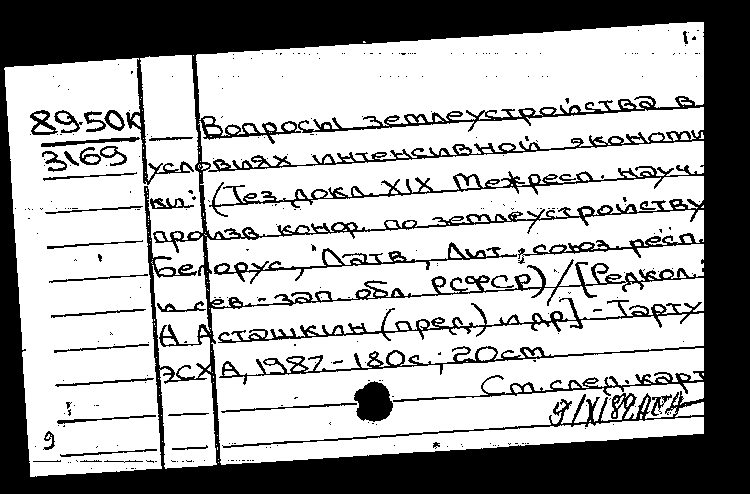 1.
89-50к Вопросы землеустройства в
3169 условиях интенсивной экономи
ки: (Тез. докл. XIX Межресп. науч.-
произв. конф. по землеустройству
Белорус., Латв., Лит. союз. респ.
и сев.-зап. обл. РСФСР) / [Редкол.:
А. Асташкин (пред.) и др.] - Тарту
ЭСХА, 1987. - 180 с.; 20 см
См. след. карт
9